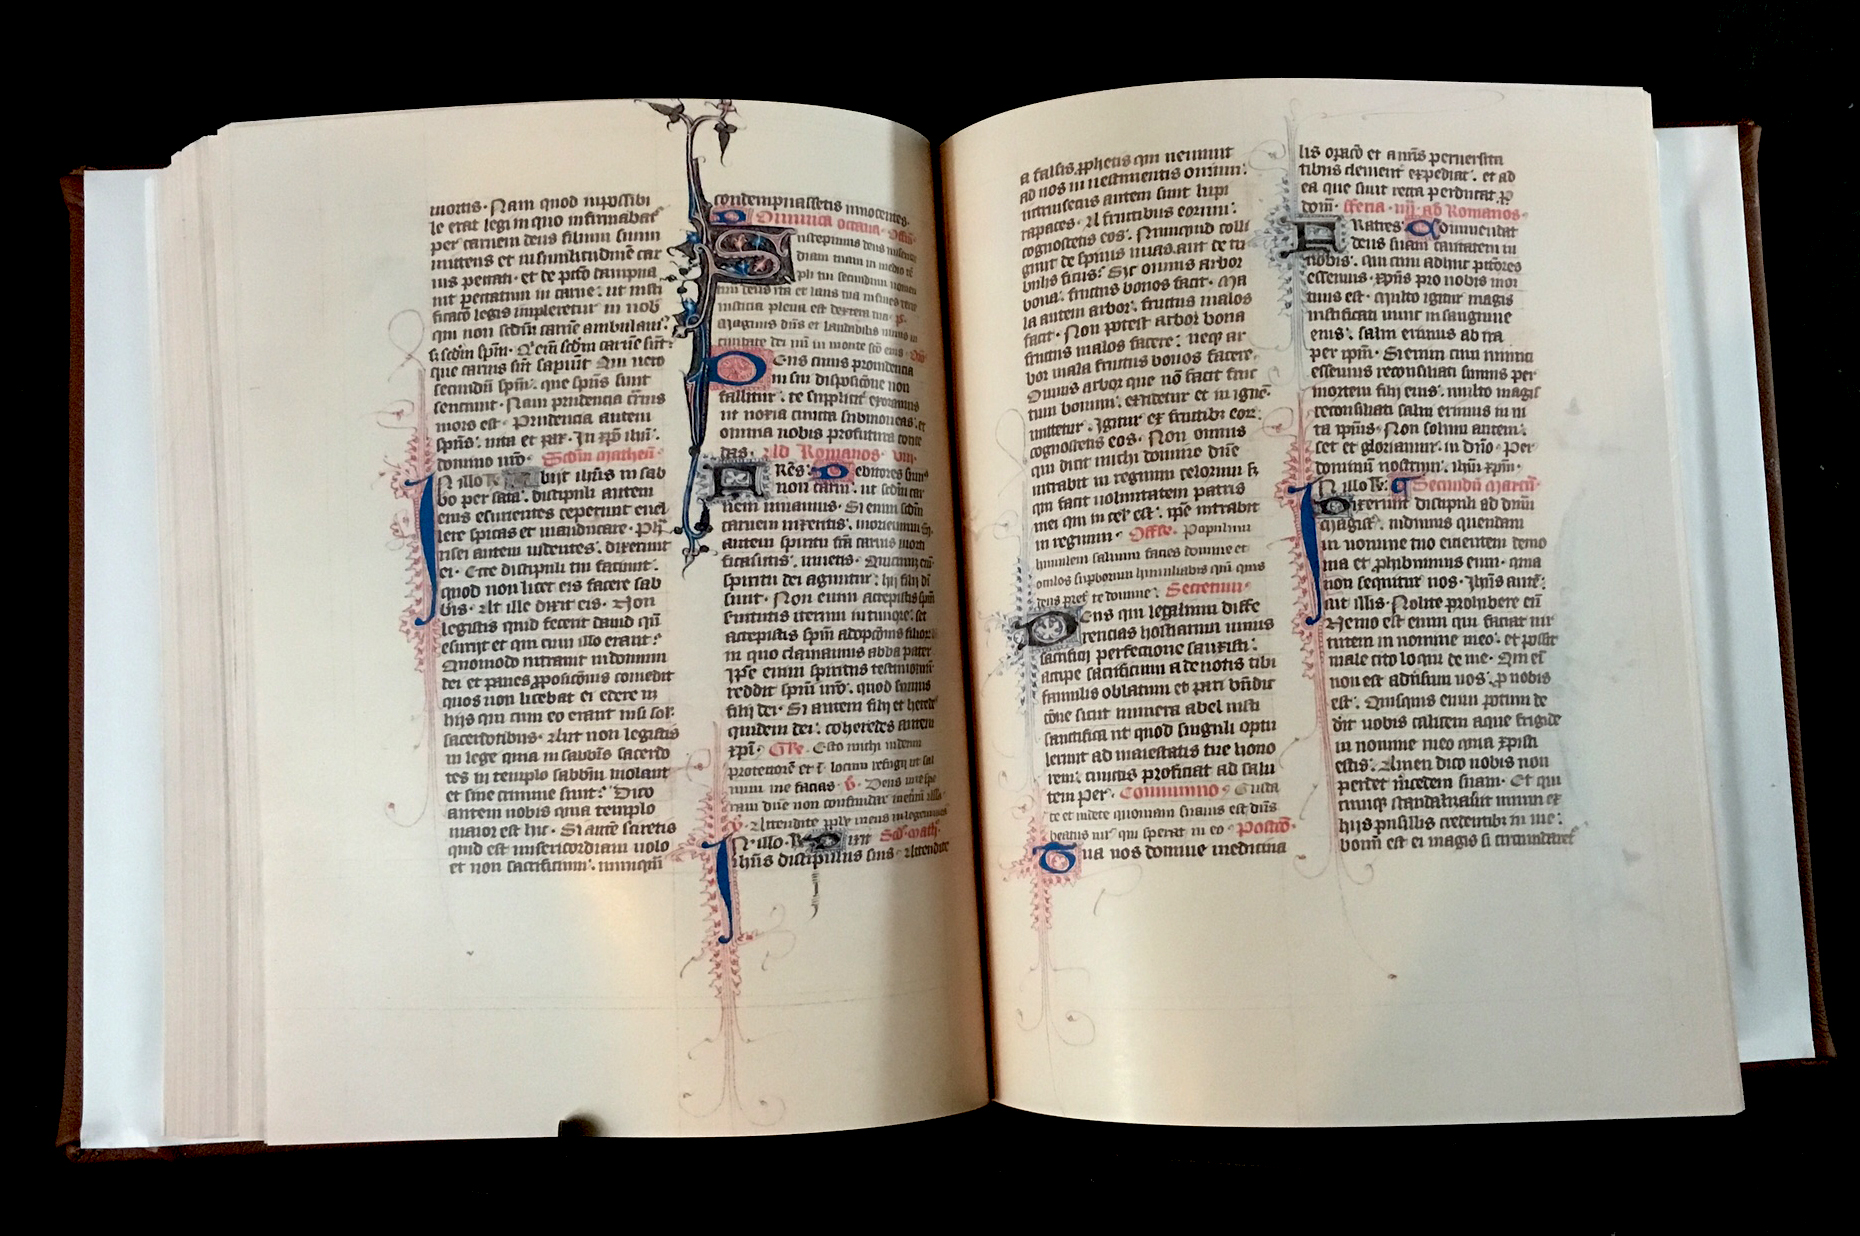 mortis · Nam quod inpossibi
le erat legi in quo infirmabat᷑
per carnem deus filium suum
mittens et in similitudinē car
nis peccati · et de pc̄to dampna
uit peccatum in carne : ut iusti
ficaco legis impleretur in nob
qui non scd̄m carnē ambulam᷒ :
scd̄m sp̄m · Q̇ eī scd̄m carnē sūt :
que carnis sūt sapiūt Qui uero
secundū sp̄m : que sp̄us sunt
senciunt · Nam prudencia c̄rnis
mors est · Prudencia autem
sp̄us : uita et pax · In xp̄o ihū :
domino nr̄o · Scd̄m matheū ·
In illo t̄ : Abiit ihūs in sab
bo per sata : discipuli autem
eius esurientes ceperunt euel
lere spicas et manducare · Ph̄
risei autem uidentes : dixerunt
ei · Ecce discipuli tui faciunt :
quod non licet eis facere sab
bīs · At ille dixit eis · Non
legistis quid fecerit dauid qn̄
esuriit et qui cum illo erant :
Quomodo intrauit in domum
dei et panes ꝓposiconis comedit
quos non licebat ei edere ni
hijs qui cum eo erant nisi sol᷑
sacerdotibus · Aut non legistis
in lege quia in sabb̄is sacerdo
tes in templo sabb̄m uiolant
et sine crimine sunt : Dico
autem uobis quia templo
maior est hic · Si autē sciretis
quid est misericordiam uolo
et non sacrificium : nunquā
condempnassetis innocentes ·
Dominica octaua · Offm̄
Suscepimus deus miseri
diam tuam in medio
pli tui secundum nomen
tuū deus ita et laus tua in fines
iusticia plena est dextera tua · p̄s
Magnus dn̄s et laudabilis nimis in
ciuitate dei nr̄i in monte scō eius ·
Deus cuius prouidencia
in sui disposicōne non
fallitur : te supplicit̄ exoramus
ut noxia cuncta submoueas : et
omnia nobis profutura conce
das · Ad Romanos · viij ·
Frēs : Debitores sum᷒
non carni : ut scd̄m car
nem uiuamus · Si enim scd̄m
carnem uixeritis : moriemini
autem spiritu fc̄a carnis morti
ficauitis : uiuetis · Quicunq
spiritu dei aguntur : hij filij dī
sunt · Non enim accepistis sp̄m
seruitutis iterum in timore : set
accepistis sp̄m adopcōnis filior
in quo clamamus abba pater
Ipse enim spiritus testimoniū
reddit sp̄ui nr̄o : quod sumus
filij dei · Si autem filij et herede
quidem dei : coheredes autem
xp̄i · Gr̄e · Esto michi in deum
protectorē et ī locum refugij ut sal
uum me facias · v̄ · Deus in te spe
raui dn̄e non confundar in et̄num
v̄ · Attendite pple meus in legem meā
In illo · t̄ · Dixit Scd̄ · math ·
ihūs discipulus suis · Attendite
a falsis ꝓphetis qui ueniunt
ad uos in uestimentis ouium :
intrinsecus autem sunt lupi
rapaces · A fructibus eorum :
cognoscetis eos · Nunquid colli
gunt de spinis uuas · aut de tri
bulis ficus : Sic omnis arbor
bona : fructus bonos facit · Ma
la autem arbor : fructus malos
facit · Non potest arbor bona
fructus malos facere : neq ar
bor mala fructus bonos facere ·
Omnis arbor que nō facit fruc
tum bonum : excidetur et in ignē :
mittetur · Igitur ex fructibꝫ eor :
cognoscetis eos · Non omnis
qui dicit michi domine dn̄e
intrabit in regnum celorum ꝫ
qui facit uoluntatem patris
mei qui in cel᷑ est : ip̄e intrabit
in regnum · Offer̄ · Populum
humilem saluum facies domine et
oculos suꝑborum humiliabis qm̄ quis
deus pret̄ te domine : Secretum ·
Deus qui legalium diffe
rencias hostiarum unius
sacrificij perfectione sanxisti :
accipe sacrificium a deuotis tibi
famulis oblatum et pari bn̄dic
cōne sicut munera abel iusti
sanctifica ut quod singuli optu
lerunt ad maiestatis tue hono
rem : cunctis proficiat ad salu
tem per · Communio · Gusta
te et uidete quoniam suauis est dn̄s
beatus uir qui sperat in eo · Postcō ·
Tua nos domine medicina
lis oꝑaco et a nr̄is peruersita
tibus clementer expediat · et ad
ea que sunt recta perducat ꝑ
dom · fferia · iiij · ad Romanos ·
Fratres : Commendat
deus suam caritatem in
nobis : qui cum adhuc pcc̄ores
essemus · xp̄us pro nobis mor
tuus est · Multo igitur magis
iustificati nunc in sanguine
eius : salui erimus ab ira
per ip̄m · Si enim cum inimici
essemus reconsiliati sumus per
mortem filij eius : multo magis
reconsiliati salui erimus in ui
ta ip̄ius · Non solum autem :
set et gloriamur : in dn̄o · Per
dominū nostrum : ihm̄ xp̄m ·
In illo t̄ : Secundū Marcū ·
Dixerunt discipuli ad dn̄m
Magist̄ : uidimus quendam
in nomine tuo eicientem demo
nia et ꝓhibuimus eum · qui
non sequitur nos · Ihūs autē :
ait illis · Nolite prohibere eū
Nemo est enim qui faciat uir
tutem in nomine meo : et possit
male cito loqui de me · Qui eī
non est adūsum uos : ꝓ nobis
est · Quisquis enim potum de
dit uobis calicem aque frigide
in nomine meo quia xp̄isti
estis : Amen dico uobis non
perdet m̄cedem suam · Et qui
cunq scandalisauit unum ex
hijs pusillis credentibꝫ in me :
bonū est ei magis si circumdaret᷑